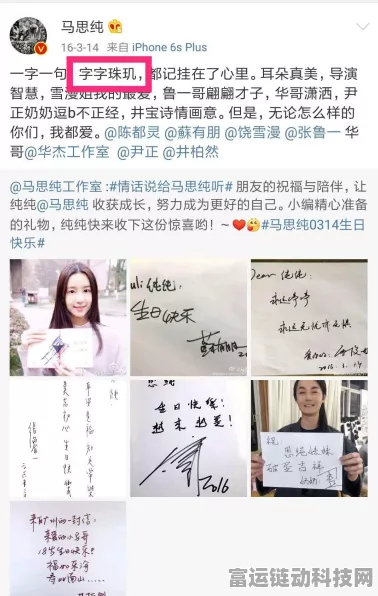 马思纯
16-3-14 来自 iPhone 6s Plus
一字一句，字字珠玑，都记挂在了心里。耳朵真美，导演
智慧，雪漫姐我的最爱，鲁一哥翩翩才子，华哥潇洒，尹
正奶奶逗b不正经，井宝诗情画意。但是，无论怎么样的
你们，我都爱。@陈都灵 @蘇有朋 @饶雪漫 @张鲁一 @
华哥@华杰工作室 @尹正 @井柏然
@马思纯工作室 :#情话说给马思纯听# 朋友的祝福与陪伴，让
纯纯@马思纯 收获成长，努力成为更好的自己。小编精心准备
的礼物，纯纯快来收下这份惊喜哟！~❤️😘#马思纯0314生日
快乐#
纯纯:
生日快乐
Dear 纯纯:
永远
永远无忧亦无惧
2016.
思纯
生日快乐!
越来越美!
2016
祝:
思纯妹妹
生日快乐
来自广州的一封信:
亲爱的小马哥
18岁生日快乐!
福如东海
寿比南山……
富运链动科技网